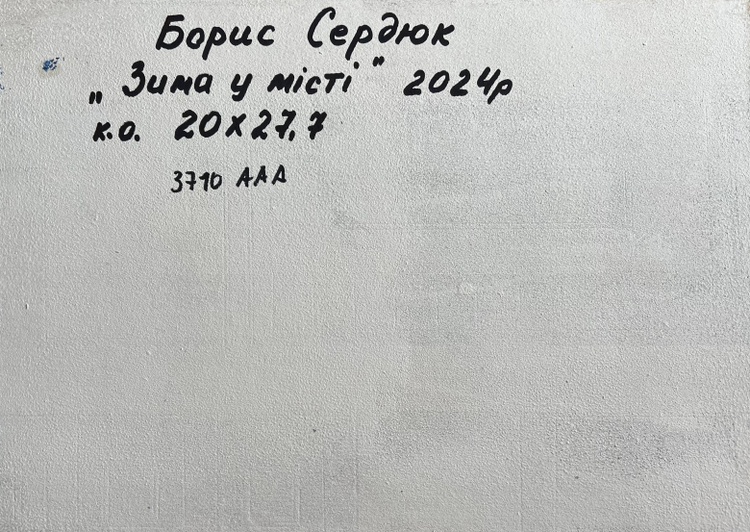 Борис Сердюк
„Зима у місті" 2024р
к.о. 20х27,7
3710 ААА